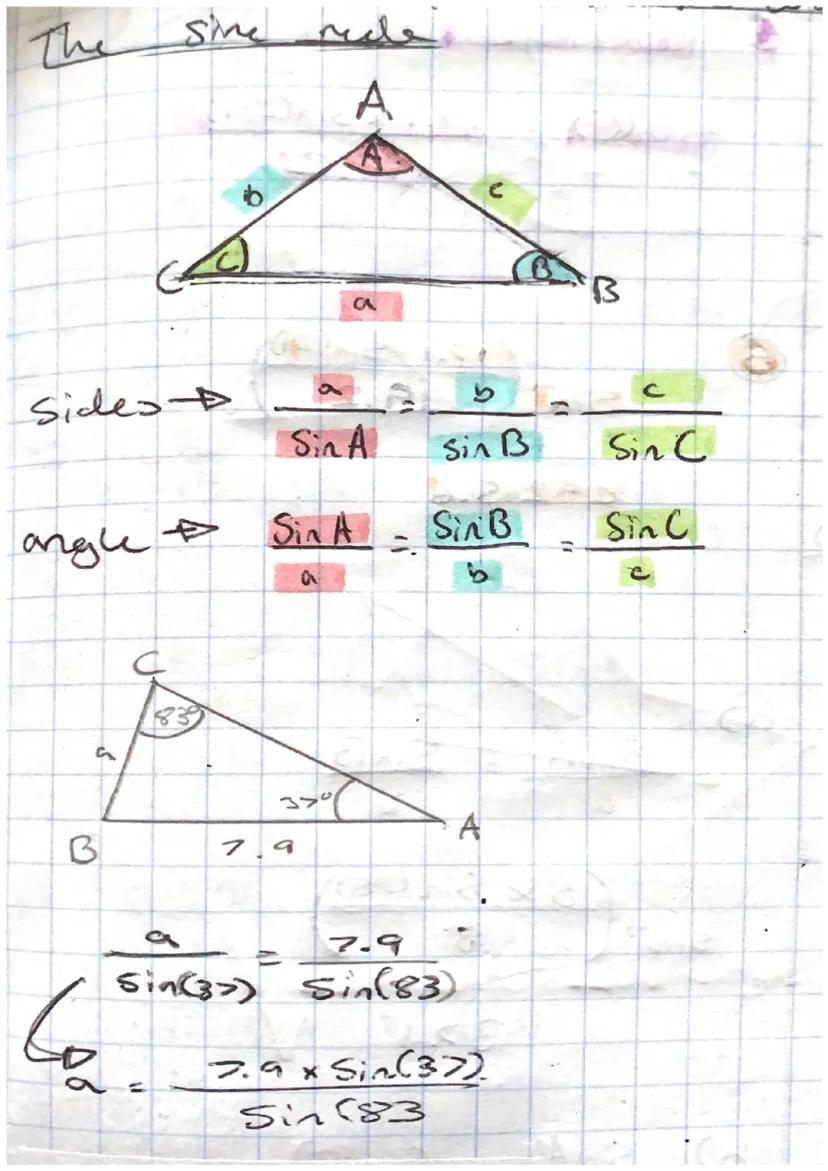 The sine rule
A
A
b c
C C B B
a
sides → a/SinA = b/sinB = c/SinC
angle → SinA/a = SinB/b = SinC/c
C
83°
a
37°
B 7.9 A
a/sin(37) = 7.9/Sin(83)
a = 7.9 x Sin(37)/Sin(83